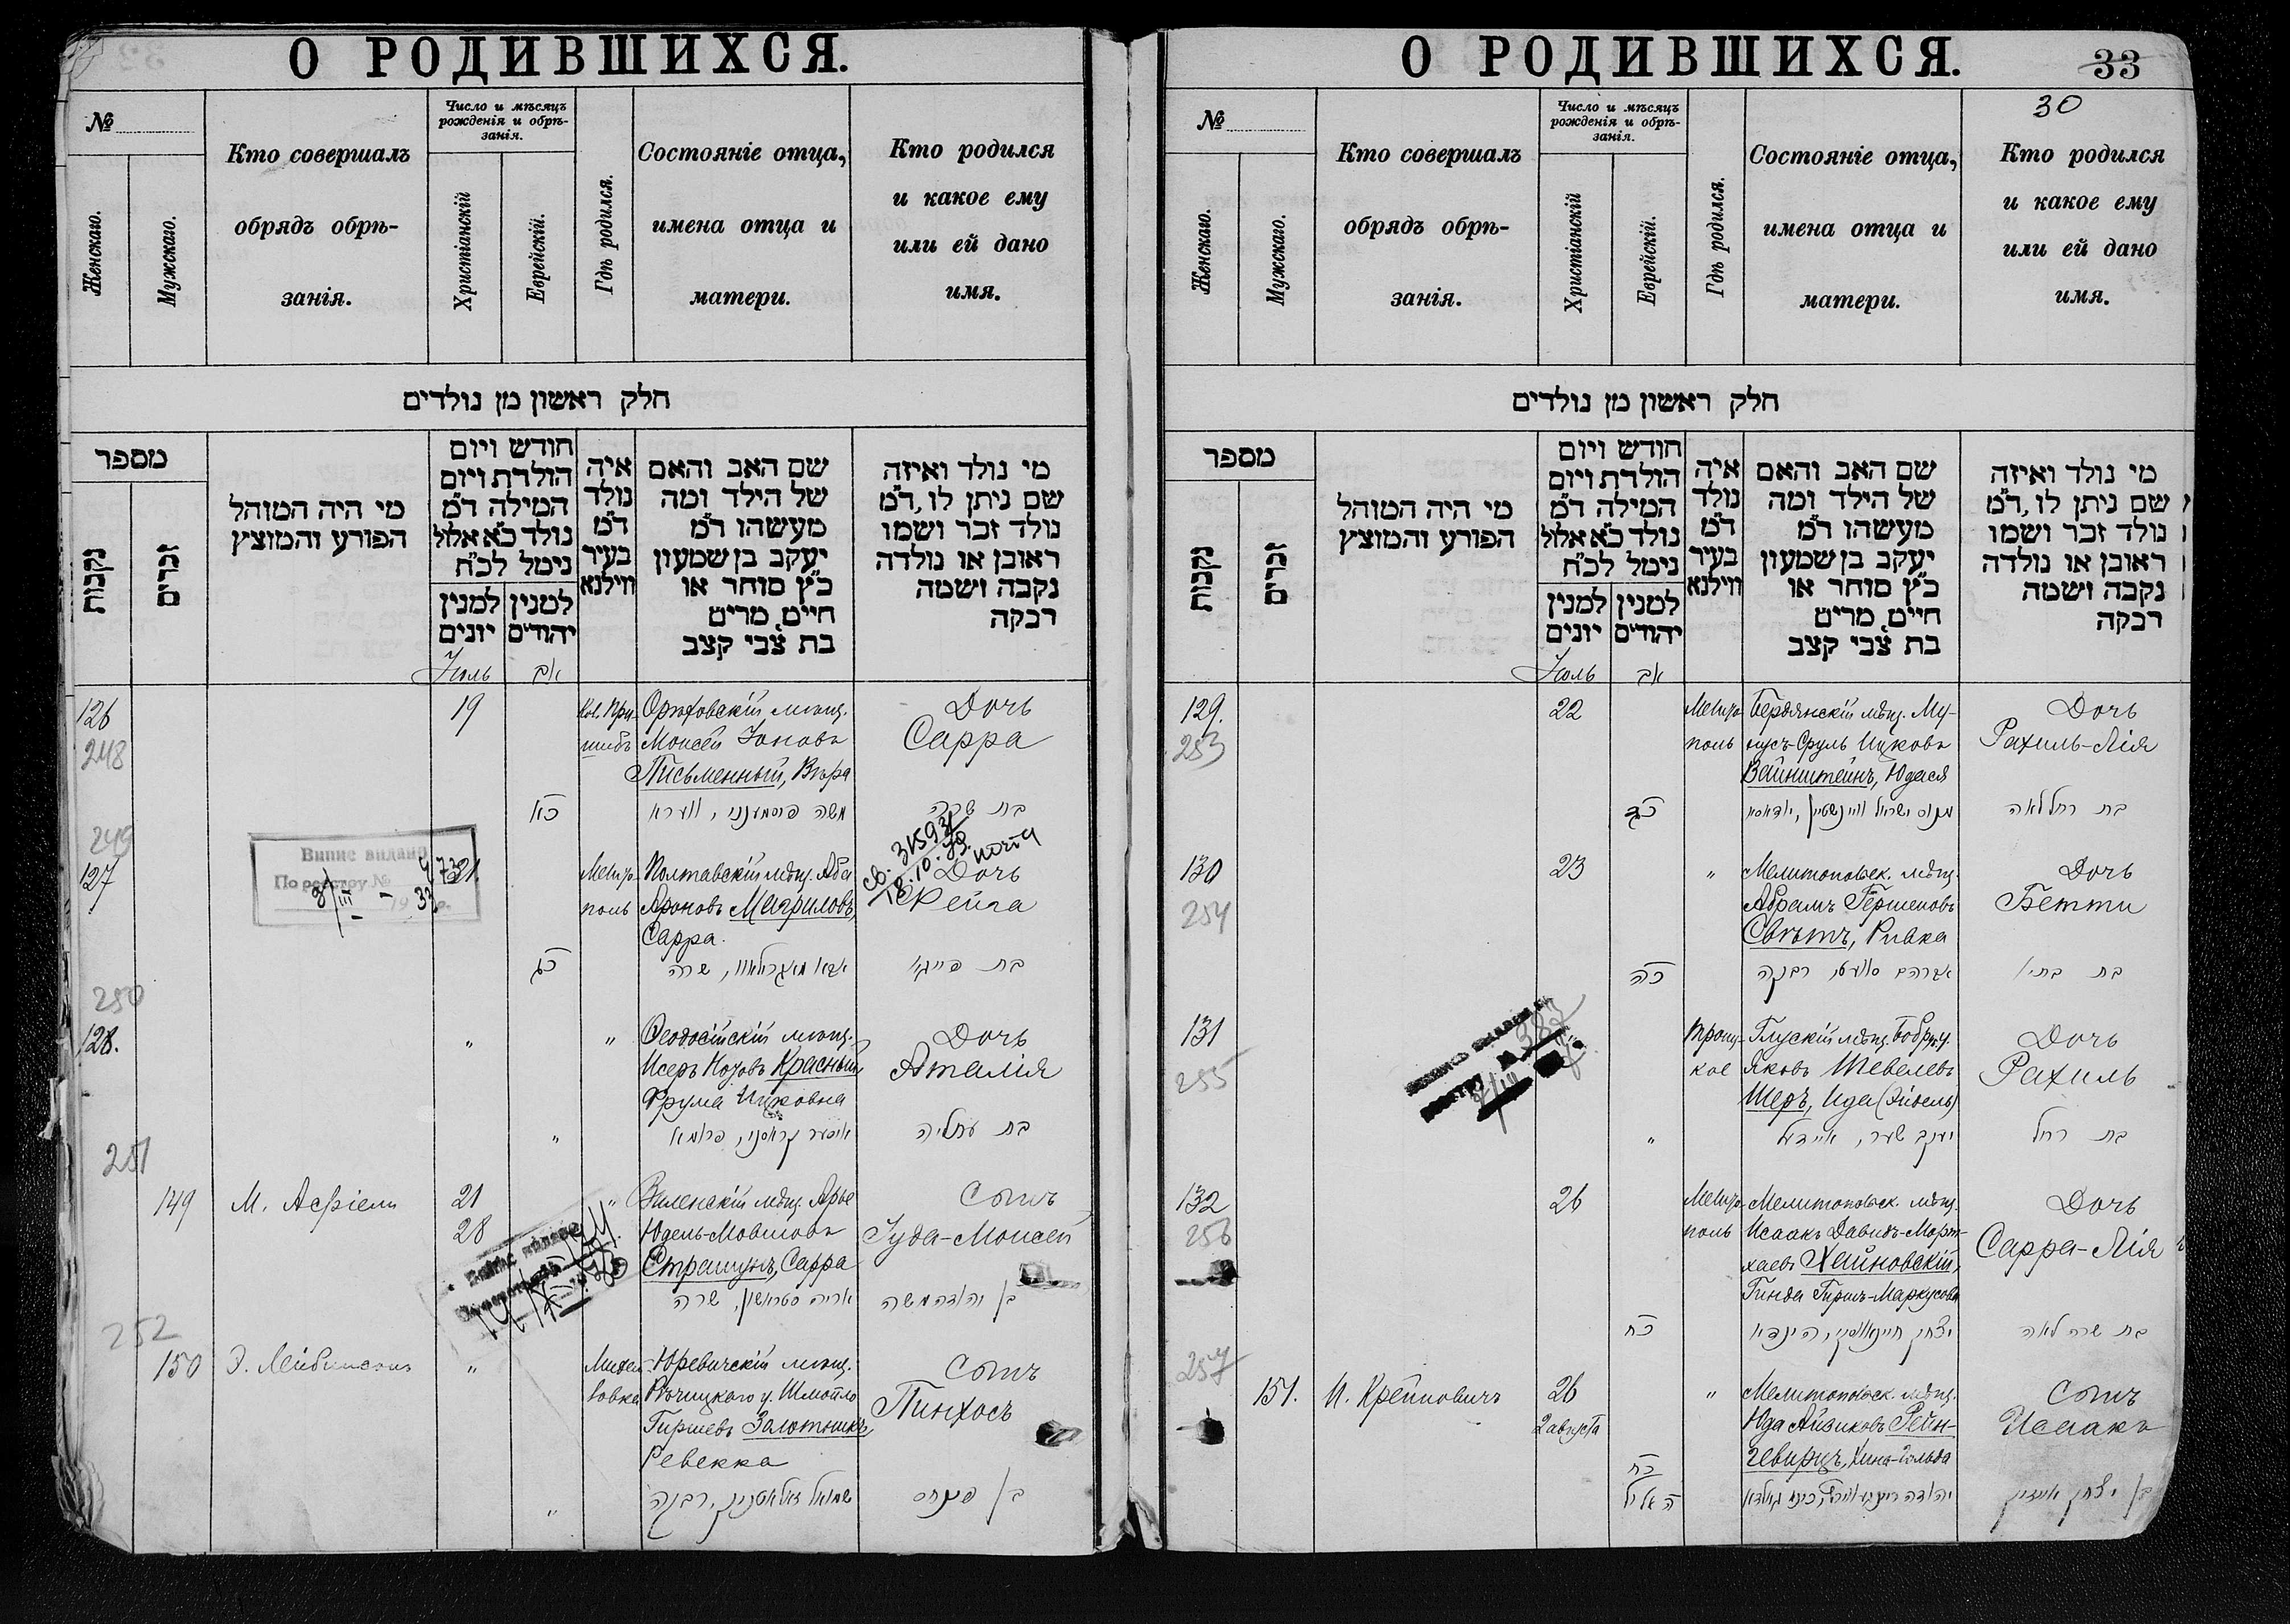 О РОДИВШИХСЯ.
№
Женскаго.
Мужскаго.
Кто совершалъ
обрядъ обрѣ-
занія.
Число и мѣсяцъ
рожденія и обрѣ-
занія.
Христіанскій
Еврейскій.
Гдѣ родился.
Состояніе отца,
имена отца и
матери.
Кто родился
и какое ему
или ей дано
имя.
חלק ראשון מן נולדים
מספר
נקבות
זכרים
מי היה המוהל
הפורע והמוצץ
חודש ויום
הולדת ויום
המילה ד״מ
נולד כ״א אלול
נימל לכ״ח
למנין
יונים
למנין
יהודים
איה
נולד
ד״מ
בעיר
ווילנא
שם האב והאם
של הילד ומה
מעשהו ד״מ
יעקב בן שמעון
כ״ץ סוחר או
חיים, מרים
בת צבי קצב
מי נולד ואיזה
שם ניתן לו, ד״מ
נולד זכר ושמו
ראובן או נולדה
נקבה ושמה
רבקה
Іюль
אב
126
248
19
Кол. При-
шибъ
Орѣховскій мѣщ.
Моисей Іоновъ
Письменный, Вѣра
Дочь
Сарра
כא
בת שרה
249
127
Випис видано
По реєстру №
21
Мелито-
поль
Полтавскій мѣщ. Аба
Ароновъ Магриловъ,
Сарра.
Дочь
Фейга
כג
שרה
בת פייגא
250
128.
"
"
Ѳеодосійскій мѣщ.
Исеръ Красный,
Фрума Ицковна
Дочь
Аталія
"
בת עתליה
251
149
М. Асріель
21
28
"
Виленскій мѣщ. Арье
Юдель-Мовшовъ
Страшунъ, Сарра
Сынъ
Іуда-Моисей
אריה סטראשון, שרה
בן יהודה משה
252
150
Э. Лейбинсонъ
"
Михай-
ловка
Юревичскій мѣщ.
Рѣчицкаго у. Шмойло
Гиршевъ Золотникъ,
Ревекка
Сынъ
Пинхосъ
"
שמואל זאלאטניק, רבקה
בן פינחס
О РОДИВШИХСЯ.
33
30
№
Женскаго.
Мужскаго.
Кто совершалъ
обрядъ обрѣ-
занія.
Число и мѣсяцъ
рожденія и обрѣ-
занія.
Христіанскій
Еврейскій.
Гдѣ родился.
Состояніе отца,
имена отца и
матери.
Кто родился
и какое ему
или ей дано
имя.
חלק ראשון מן נולדים
מספר
נקבות
זכרים
מי היה המוהל
הפורע והמוצץ
חודש ויום
הולדת ויום
המילה ד״מ
נולד כ״א אלול
נימל לכ״ח
למנין
יונים
למנין
יהודים
איה
נולד
ד״מ
בעיר
ווילנא
שם האב והאם
של הילד ומה
מעשהו ד״מ
יעקב בן שמעון
כ״ץ סוחר או
חיים, מרים
בת צבי קצב
מי נולד ואיזה
שם ניתן לו, ד״מ
נולד זכר ושמו
ראובן או נולדה
נקבה ושמה
רבקה
Іюль
אב
129.
253
22
Мелито-
поль
Бердянскій мѣщ. Му-
нусъ-Сруль Ицковъ
Вайнштейнъ, Юдася
Дочь
Рахиль-Лія
כד
בת רחל לאה
130
254
23
"
Мелитопольск. мѣщ.
Абрамъ Гершеновъ
Свѣтъ, Ривка
Дочь
Бетти
כה
אברהם סוועט, רבקה
בת בתי
131
255
Троиц-
кое
Глускій мѣщ. Бобр. у.
Яковъ Шевелевъ
Шеръ, Ида (Эйдель)
Дочь
Рахиль
"
יעקב שער, איידל
בת רחל
132
256
26
Мелито-
поль
Мелитопольск. мѣщ.
Исаакъ Давидъ-Морт-
хаевъ Хайновскій,
Гинда Гиршъ-Маркусовна
Дочь
Сарра-Лія
כח
בת שרה לאה
257
151.
И. Крейновичъ
26
2 августа
"
Мелитопольск. мѣщ.
Юда Айзиковъ Рейн-
гевирцъ, Хина-Гольда
Сынъ
Исаакъ
כח
ה אלול
בן יצחק אייזיק